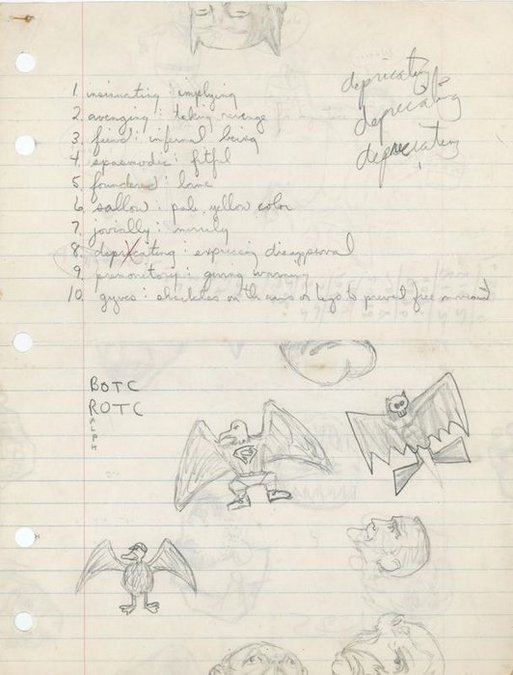 depricating
deprecating
depreciating
1. insinuating : implying
2. avenging : taking revenge
3. fiend : infernal being
4. spasmodic : fitful
5. foundered : lame
6. sallow : pale, yellow color
7. jovially : merrily
8. depricating : expressing disapproval
9. premonitory : giving warning
10. gyves : shackles on the arms or legs to prevent free movement
BOTC
ROTC
ALPH